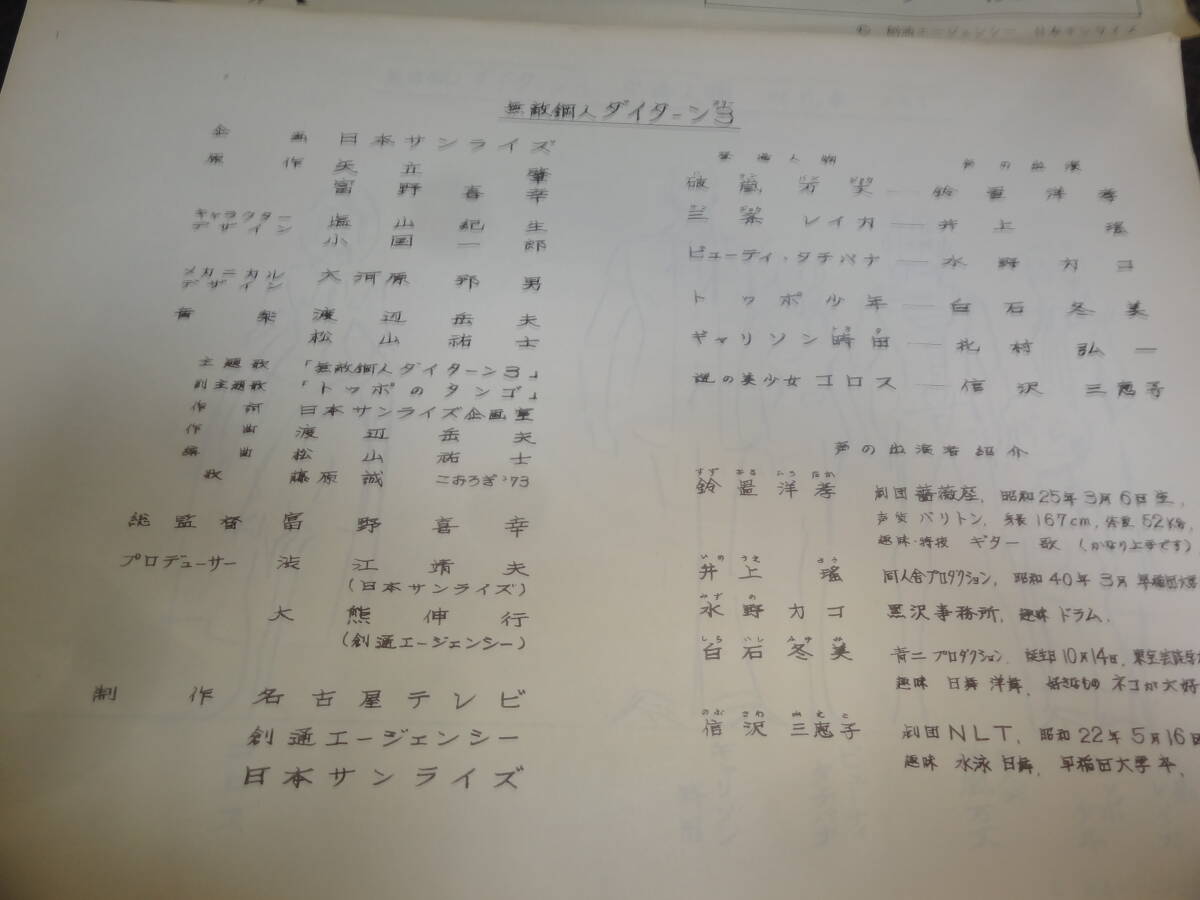 無敵鋼人 ダイターン3
企画 日本サンライズ
原作 矢立肇
富野喜幸
キャラクターデザイン 塩山紀生
小国一郎
メカニカルデザイン 大河原邦男
音楽 渡辺岳夫
松山祐士
主題歌 「無敵鋼人ダイターン3」
副主題歌 「トッポのタンゴ」
作詞 日本サンライズ企画室
作曲 渡辺岳夫
編曲 松山祐士
歌 藤原誠 こおろぎ'73
総監督 富野喜幸
プロデューサー 渋江靖夫
(日本サンライズ)
大熊伸行
(創通エージェンシー)
制作 名古屋テレビ
創通エージェンシー
日本サンライズ
登場人物 声の出演
破嵐万丈 — 鈴置洋孝
三条レイカ — 井上瑤
ビューティ・タチバナ — 水野カコ
トッポ少年 — 白石冬美
ギャリソン時田 — 北村弘一
謎の美少女コロス — 信沢三恵子
声の出演者紹介
鈴置洋孝 劇団薔薇座, 昭和25年3月6日生,
声質 バリトン, 身長167cm, 体重52kg,
趣味・特技 ギター 歌 (かなり上手です)
井上瑤 同人舎プロダクション, 昭和40年3月 早稲田大学
水野カコ 黒沢事務所, 趣味 ドラム,
白石冬美 青二プロダクション, 誕生日10月14日,
趣味 日舞 洋舞, 好きなもの ネコが大好
信沢三恵子 劇団NLT, 昭和22年5月16日
趣味 水泳 日舞, 早稲田大学卒,